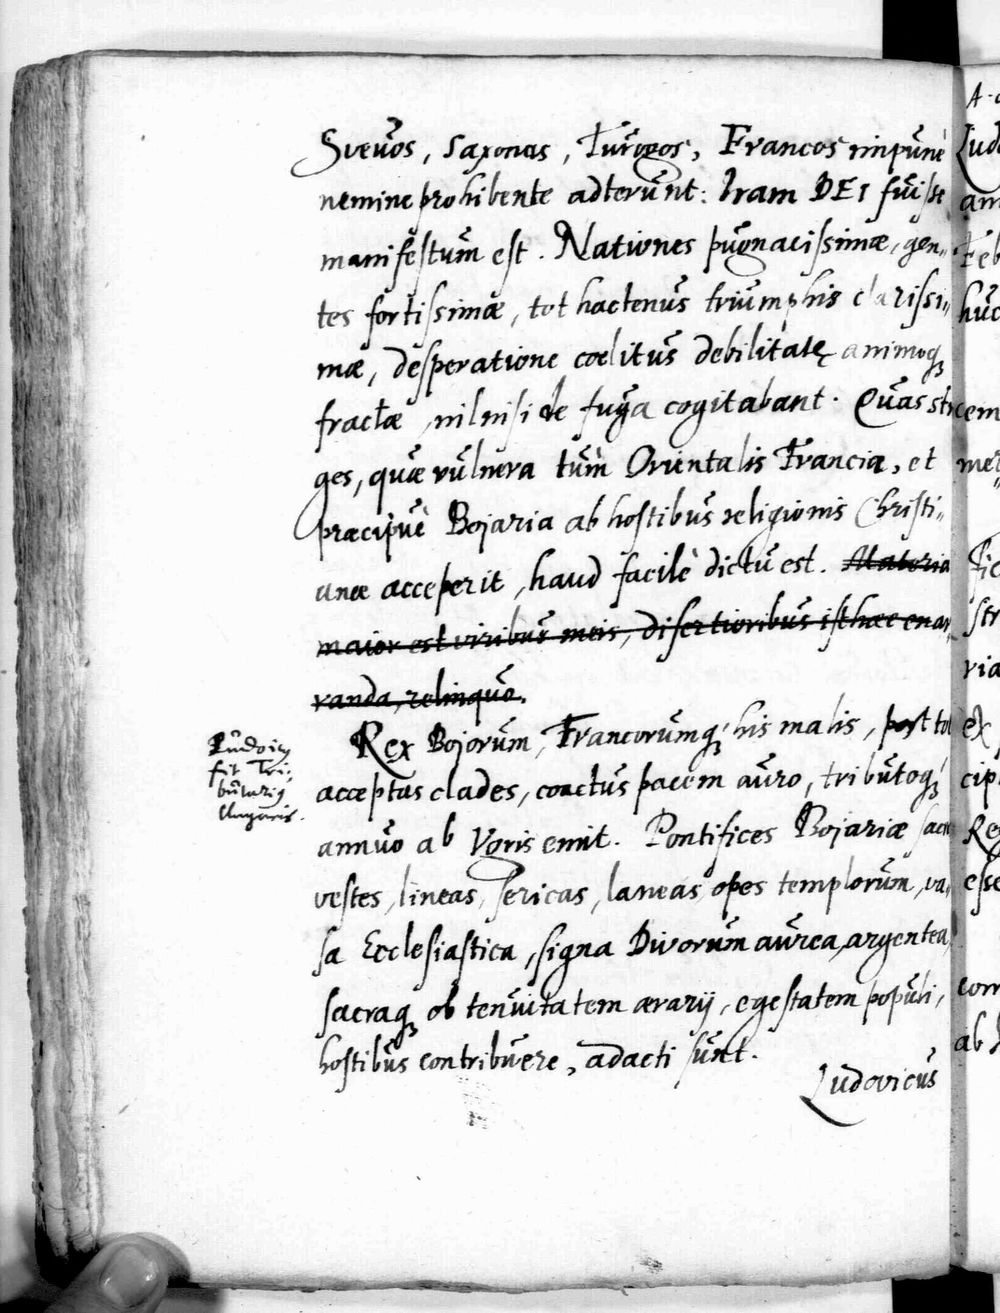 Svevos, Saxonas, Turogos, Francos impunè
nemine prohibente adterunt: Iram DEI fuisse
manifestum est. Nationes pugnacissimæ, gen„
tes fortissimæ, tot hactenus triumphis clarissi„
mæ, desperatione coelitus debilitatę animoq₃
fractæ, nil nisi de fuga cogitabant. Quas stra
ges, quæ vulnera tum Orientalis Francia, et
præcipuè Bojaria ab hostibus religionis Christi„
anæ acceperit, haud facilè dictu est. Materia
maior est viribus meis, disertioribus isthæc enar„
randa, relinquo.
Rex Bojorum, Francorumq₃ his malis, post tot
acceptas clades, coactus pacem auro, tributoq₃
annuo ab Vgris emit. Pontifices Bojariæ sacr
vestes, lineas, sericas, laneas, opes templorum, va„
sa Ecclesiastica, signa Divorum aurea, argentea,
sacraq₃ ob tenuitatem ærarij, egestatem populi,
hostibus contribuere, adacti sunt.
Ludovicus
Ludoicꝰ
fit Tri„
butariꝰ
Ungaris.